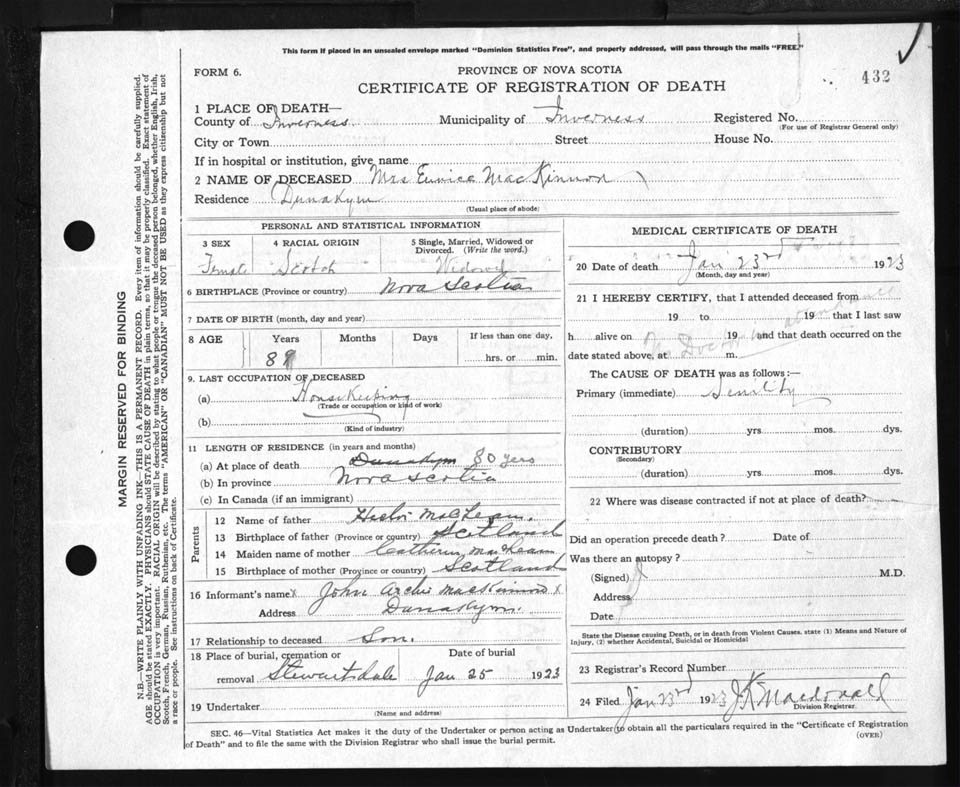 This form if placed in an unsealed envelope marked "Dominion Statistics Free", and properly addressed, will pass through the mails "FREE."
432
FORM 6.
PROVINCE OF NOVA SCOTIA
CERTIFICATE OF REGISTRATION OF DEATH
1 PLACE OF DEATH—
County of Inverness Municipality of Inverness Registered No.
(For use of Registrar General only)
City or Town Street House No.
If in hospital or institution, give name
2 NAME OF DECEASED Mrs Eunice MacKinnon
Residence Dunakyn
(Usual place of abode)
PERSONAL AND STATISTICAL INFORMATION
3 SEX 4 RACIAL ORIGIN 5 Single, Married, Widowed or Divorced. (Write the word.)
Female Scotch Widowed
6 BIRTHPLACE (Province or country) Nova Scotia
7 DATE OF BIRTH (month, day and year)
8 AGE Years Months Days If less than one day,
89 hrs. or min.
9. LAST OCCUPATION OF DECEASED
(a) Housekeeping
(Trade or occupation or kind of work)
(b)
(Kind of industry)
11 LENGTH OF RESIDENCE (in years and months)
(a) At place of death Dunakyn 80 yers
(b) In province Nova Scotia
(c) In Canada (if an immigrant)
Parents
12 Name of father Hector MacLean.
13 Birthplace of father (Province or country) Scotland
14 Maiden name of mother Catherin MacLean
15 Birthplace of mother (Province or country) Scotland
16 Informant's name x John Archie MacKinnon x
Address Dunakyn.
17 Relationship to deceased Son.
18 Place of burial, cremation or Date of burial
removal Stewartsdale Jan 25 1923
19 Undertaker
(Name and address)
MEDICAL CERTIFICATE OF DEATH
20 Date of death Jan 23rd 1923
(Month, day and year)
21 I HEREBY CERTIFY, that I attended deceased from
19 to 19 that I last saw
h alive on 19 and that death occurred on the
date stated above, at m.
No Doctor in attendance
The CAUSE OF DEATH was as follows:—
Primary (immediate) Senility
(duration) yrs. mos. dys.
CONTRIBUTORY
(Secondary)
(duration) yrs. mos. dys.
22 Where was disease contracted if not at place of death?
Did an operation precede death? Date of
Was there an autopsy?
(Signed) M.D.
Address
Date
State the Disease causing Death, or in death from Violent Causes, state (1) Means and Nature of
Injury, (2) whether Accidental, Suicidal or Homicidal
23 Registrar's Record Number
24 Filed Jan 23rd 1923 J.K. Macdonald
Division Registrar.
SEC. 46—Vital Statistics Act makes it the duty of the Undertaker or person acting as Undertaker to obtain all the particulars required in the "Certificate of Registration
of Death" and to file the same with the Division Registrar who shall issue the burial permit.
(OVER)
MARGIN RESERVED FOR BINDING
N.B.—WRITE PLAINLY WITH UNFADING INK—THIS IS A PERMANENT RECORD. Every item of information should be carefully supplied.
AGE should be stated EXACTLY. PHYSICIANS should STATE CAUSE OF DEATH in plain terms, so that it may be properly classified. Exact statement of
OCCUPATION is very important. RACIAL ORIGIN will be described by stating to what people or tongue the deceased person belonged, whether English, Irish,
Scotch, French, German, Russian, Ruthenian, etc. The terms "AMERICAN" OR "CANADIAN" MUST NOT BE USED as they express citizenship but not
a race or people. See instructions on back of Certificate.